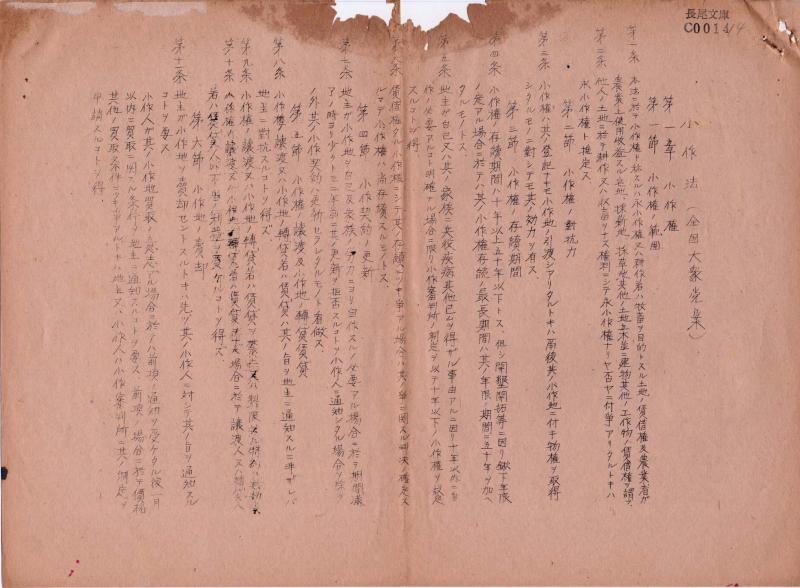 長尾文庫
C0014/4
小作法（全国大衆党案）
第一章 小作権
第一節 小作権ノ範囲
第一条 本法ニ於テ小作権ト称スルハ永小作権又ハ耕作若ハ牧畜ヲ目的トスル土地ノ賃借権及農業者ガ
農業上使用収益スル宅地、採薪地、採草地其他ノ土地立木並ニ建物其他ノ工作物ノ賃借権ヲ謂フ
第二条 他人ノ土地ニ於テ耕作又ハ牧畜ヲナス権利ニシテ永小作権ナリヤ否ヤニ付争アリタルトキハ
永小作権ト推定ス
第二節 小作権ノ対抗力
第三条 小作権ハ其ノ登記ナキモ小作地ノ引渡シアリタルトキハ爾後其ノ小作地ニ付キ物権ヲ取得
シタルモノニ対シテモ其ノ効力ヲ有ス
第三節 小作権ノ存続期間
第四条 小作権ノ存続期間ハ十年以上五十年以下トス、但シ開墾開拓等ニ因リ鍬下年限
ノ定アル場合ニ於テハ其ノ小作権存続ノ最長期間ハ其ノ年限ノ期間ニ五十年ヲ加ヘ
タルモノトス
第五条 地主ガ自己又ハ其ノ家族ニ兵役疾病其他已ムヲ得ザル事由アルニ因リ十年以内ニ自
作ノ必要アルコト明確ナル場合ニ限リ小作審判所ノ判定ヲ以テ十年以下ノ小作権ヲ設定
スルコトヲ得
第六条 賃借権タル小作権ニシテ其ノ存続ニツキ争アル場合ハ其ノ争ニ関スル判決ノ確定ス
ルマデ小作権ハ尚存続スルモノトス
第四節 小作契約ノ更新
第七条 地主ガ小作地ヲ自己及家族ノ労力ニヨリ自作スルノ必要アル場合ニ於テ期間満
了ノ時ヨリ少クトモ二年前ニ其ノ更新ヲ拒否スルコトヲ小作人ニ通知シタル場合ヲ除ク
ノ外其ノ小作契約ハ更新セラレタルモノト看做ス
第五節 小作権ノ譲渡及小作地ノ転貸賃貸
第八条 小作権ノ譲渡又ハ小作地ノ転貸若ハ賃貸ハ其ノ旨ヲ地主ニ通知スルニ非ザレバ
地主ニ対抗スルコトヲ得ズ
第九条 小作権ノ譲渡又ハ小作地ノ転貸若ハ賃貸ヲ禁止又ハ制限シタル特約ハ無効トス
第十条 小作権ノ譲渡又ハ小作地ノ転貸若ハ賃貸ヲナス場合ニ於テ譲渡人又ハ転貸人
若ハ賃貸人ハ不当ノ利益ヲ受ケルコトヲ得ズ
第六節 小作地ノ売却
第十一条 地主ガ小作地ヲ売却セントスルトキハ先ヅ其ノ小作人ニ対シテ其ノ旨ヲ通知スル
コトヲ要ス
小作人ガ其ノ小作地買取ノ意志アル場合ニ於テハ前項ノ通知ヲ受ケタル後一月
以内ニ買取ニ関スル条件ヲ地主ニ通知スルコトヲ要ス、前項ノ場合ニ於テ価格
其他ノ買取条件ニツキ争アルトキハ地主又ハ小作人ハ小作審判所ニ其ノ判定ヲ
申請スルコトヲ得